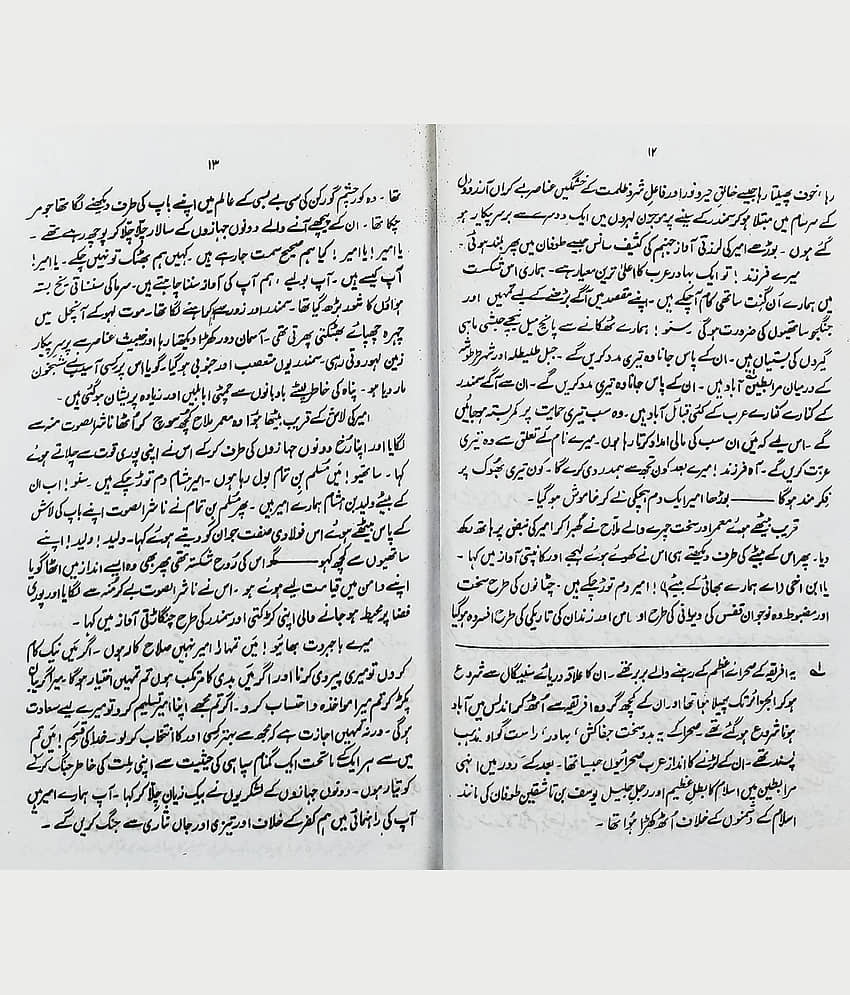 ۱۲
رہا، خوف پھیلتا رہا جیسے خالقِ خیر و نور اور فاعلِ شر و ظلمت کے خشمگیں عناصر بے کراں آندھیوں
کے سرسام میں مبتلا ہو کر سمندر کے سینے پر موجوں لہروں میں ایک دوسرے سے برسرِ پیکار ہو
گئے ہوں۔ بوڑھے امیر کی لرزتی آواز جہنم کی کثیف سانس جیسے طوفان میں پھر بلند ہوئی۔
میرے فرزند! تو ایک بہادر عرب کا اعلیٰ ترین معیار ہے۔ ہماری اس شکست
میں ہمارے اَن گنت ساتھی کام آ چکے ہیں۔ اپنے مقصد میں آگے بڑھنے کے لیے تمہیں اور
جنگجو ساتھیوں کی ضرورت ہوگی۔ سنو! ہمارے ٹھکانے سے پانچ میل نیچے حبشی ماہی
گیروں کی بستیاں ہیں۔ ان کے پاس جانا وہ تیری مدد کریں گے۔ جبل طلیطلہ اور شہر طرطوشہ
کے درمیان مرابطین آباد ہیں۔ ان کے پاس جانا وہ تیری مدد کریں گے۔ ان سے آگے سمندر
کے کنارے کنارے عرب کے کئی قبائل آباد ہیں۔ وہ سب تیری حمایت پر کمربستہ ہو جائیں
گے۔ اس لیے کہ میں ان سب کی مالی امداد کرتا رہا ہوں۔ میرے نام کے تعلق سے وہ تیری
عزت کریں گے۔ آہ فرزند! میرے بعد کون تجھ سے ہمدردی کرے گا۔ کون تیری بھوک پر
فکر مند ہوگا ـــــــ بوڑھا امیر ایک دم ہچکی لے کر خاموش ہو گیا۔
قریب بیٹھے ہوئے معمر اور سخت چہرے والے ملاح نے گھبرا کر امیر کی نبض پر ہاتھ رکھ
دیا۔ پھر اس کے بیٹے کی طرف دیکھتے ہی اس نے کھوئے ہوئے لہجے اور کانپتی آواز میں کہا۔
یا ابن اخی (اے ہمارے بھائی کے بیٹے)! امیر دم توڑ چکے ہیں۔ چٹانوں کی طرح سخت
اور مضبوط وہ نوجوان قفس کی ویرانی کی طرح اداس اور زندان کی تاریکی کی طرح افسردہ ہو گیا
لے یہ افریقہ کے صحرائے اعظم کے رہنے والے بربر تھے۔ ان کا علاقہ دریائے سنیگال سے شروع
ہو کر الجزائر تک پھیلا ہوا تھا اور ان کے کچھ گروہ افریقہ سے اُٹھ کر اندلس میں آباد
ہونا شروع ہو گئے تھے۔ صحرا کے یہ بدو سخت جفاکش، بہادر، راست گو اور مذہب
پسند تھے۔ ان کے لڑنے کا انداز عرب صحرائیوں جیسا تھا۔ بعد کے دور میں انہی
مرابطین میں اسلام کا بطلِ عظیم اور رجلِ جلیل یوسف بن تاشفین طوفان کی مانند
اسلام کے دشمنوں کے خلاف اُٹھ کھڑا ہوا تھا۔
۱۳
تھا۔ وہ کور چشم گورکن کی سی بے بسی کے عالم میں اپنے باپ کی طرف دیکھنے لگا تھا جو مر
چکا تھا۔ ان کے پیچھے آنے والے دونوں جہازوں کے سالار چلّا چلّا کر پوچھ رہے تھے۔
یا امیر! یا امیر! کیا ہم صحیح سمت جا رہے ہیں۔ کہیں ہم بھٹک تو نہیں چکے۔ یا امیر!
آپ کیسے ہیں۔ آپ بولیے، ہم آپ کی آواز سننا چاہتے ہیں۔ سرما کی سنسناتی یخ بستہ
ہواؤں کا شور بڑھ گیا تھا۔ سمندر اور زور سے کراہنے لگا تھا۔ موت لہو کے آنچل میں
چہرہ چھپائے بھٹکتی پھرتی تھی۔ آسمان دور کھڑا دیکھتا رہا اور خبیث عناصر سے برسرِ پیکار
زمین لہو روتی رہی۔ سمندر یوں متعصب اور جنونی ہو گیا۔ گویا اس پر کسی آسیب نے شبخون
مار دیا ہو۔ پناہ کی خاطر پھٹے بادبانوں سے چمٹی ابابیلیں اور زیادہ پریشان ہو گئی ہیں۔
امیر کی لاش کے قریب بیٹھا ہوا وہ معمر ملاح کچھ سوچ کر اُٹھا ناشر الصوت منہ سے
لگایا اور اپنا رخ دونوں جہازوں کی طرف کر کے اس نے اپنی پوری قوت سے چلاتے ہوئے
کہا۔ ساتھیو! میں مُسلم بن تمام بول رہا ہوں۔ امیر ہشام دم توڑ چکے ہیں۔ سنو! اب ان
کے بیٹے ولید بن ہشام ہمارے امیر ہیں۔ پھر مُسلم بن تمام نے ناشر الصوت اپنے باپ کی لاش
کے پاس بیٹھے ہوئے اس فولادی صفت جوان کو دیتے ہوئے کہا۔ ولید! ولید! اپنے
ساتھیوں سے کچھ کہو ـــــــ گو اس کی رُوح شکستہ تھی پھر بھی وہ ایسے انداز میں اٹھا گویا
اپنے دامن میں قیامت لیے ہوئے ہو۔ اس نے ناشر الصوت لے کر منہ سے لگایا اور پوری
فضا پر محیط ہو جانے والی اپنی کڑکتی اور سمندر کی طرح چنگاڑتی آواز میں کہا۔
میرے باجبروت بھائیو! میں تمہارا امیر نہیں صلاح کار ہوں۔ اگر میں نیک کام
کروں تو میری پیروی کرنا اور اگر میں بدی کا مرتکب ہوں تم تمہیں اختیار ہوگا میرا گریبان
پکڑ کر تم میرا مواخذہ و احتساب کرو۔ اگر تم مجھے اپنا امیر تسلیم کرو تو میرے لیے سعادت
ہوگی۔ ورنہ تمہیں اجازت ہے کہ مجھ سے بہتر کسی اور کا انتخاب کر لو۔ خدا کی قسم! میں تم
میں سے ہر ایک کے ماتحت ایک گمنام سپاہی کی حیثیت سے اپنی ملت کی خاطر جنگ کرنے
کو تیار ہوں۔ دونوں جہازوں کے لشکریوں نے بیک زبان چلّا کر کہا۔ آپ ہمارے امیر ہیں
آپ کی راہنمائی میں ہم کفر کے خلاف اور تیزی اور جاں نثاری سے جنگ کریں گے۔